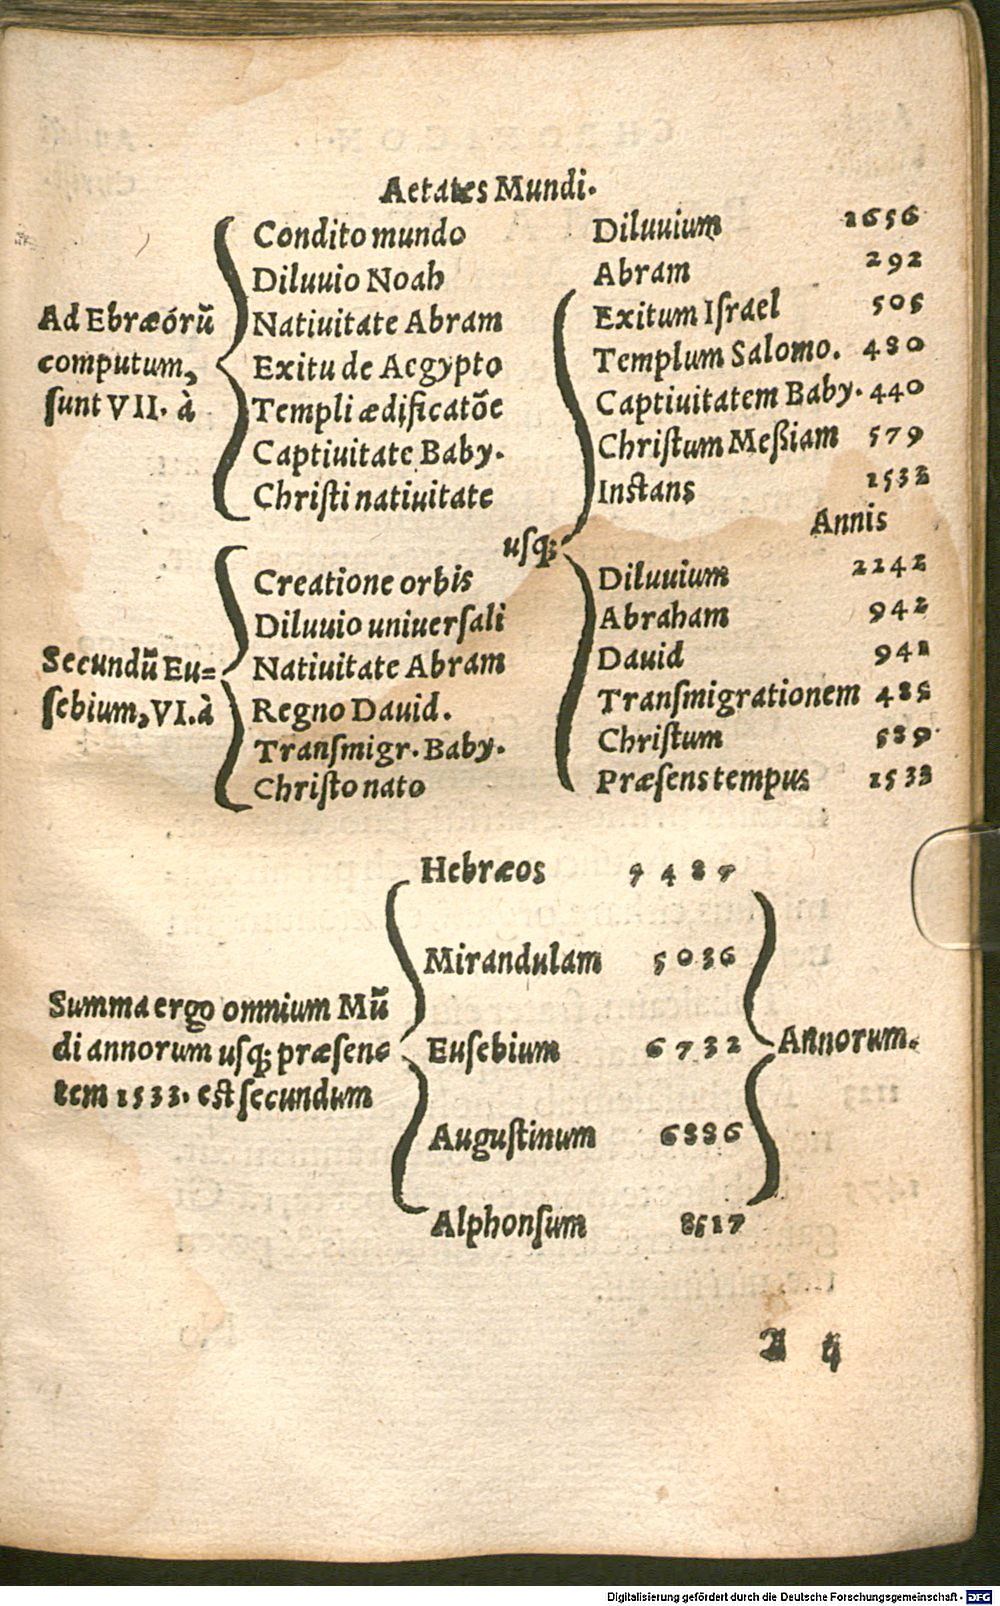 Aetates Mundi.
Ad Ebræórũ
computum,
ſunt VII. à
Condito mundo Diluuium 1656
Diluuio Noah Abram 292
Natiuitate Abram Exitum Iſrael 505
Exitu de Aegypto Templum Salomo. 480
Templi ædificatõe Captiuitatem Baby. 440
Captiuitate Baby. Chriſtum Meßiam 579
Chriſti natiuitate Instans 1533
uſq; Annis
Secundũ Eu=
ſebium, VI. à
Creatione orbis Diluuium 2242
Diluuio uniuerſali Abraham 942
Natiuitate Abram Dauid 941
Regno Dauid. Tranſmigrationem 485
Tranſmigr. Baby. Chriſtum 589
Chriſto nato Præſens tempus 1533
Summa ergo omnium Mũ
di annorum uſq; præſen=
tem 1533. eſt ſecundum
Hebræos 5487
Mirandulam 5036
Euſebium 6732
Auguſtinum 6886
Alphonſum 8517
Annorum.